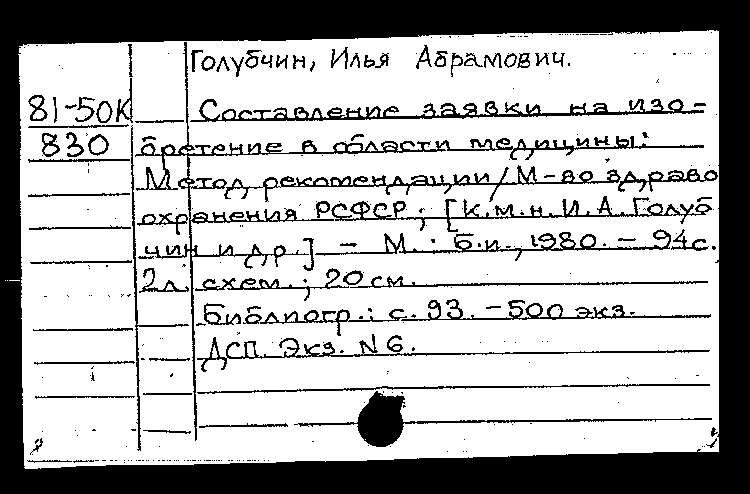 Голубчин, Илья Абрамович.
81-50К Составление заявки на изо-
830 бретение в области медицины:
Метод. рекомендации/М-во здраво
охранения РСФСР; [К.м.н. И.А. Голуб
чин и др.] - М. : Б.и., 1980. - 94с.
2л. схем.; 20см.
Библиогр.: с. 93. - 500 экз.
ДСП. Экз. N 6.